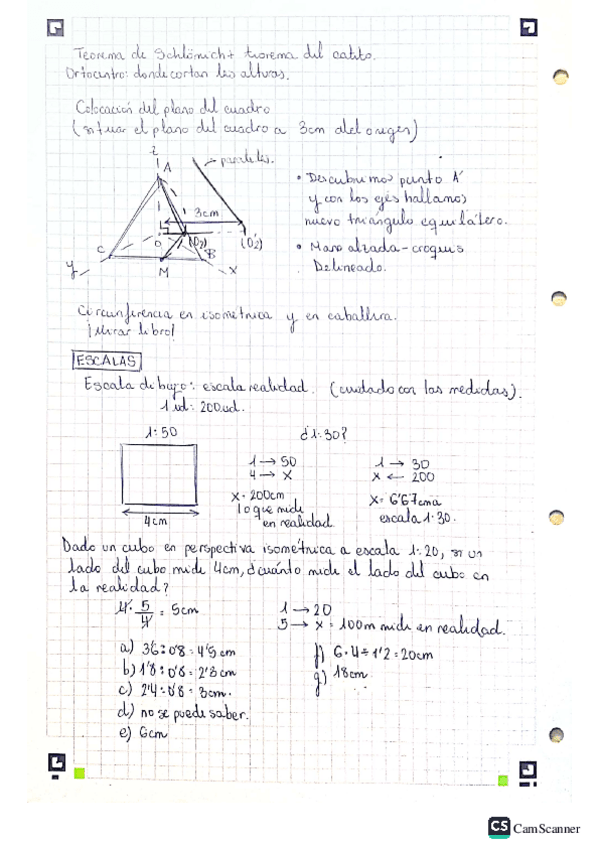 Teorema de Schlömicht teorema del cateto.
Ortocentro: donde cortan las alturas.
Colocación del plano del cuadro
(situar el plano del cuadro a 3cm del origen)
z
A
paralelas.
3cm
O
(O2)
(O2')
C
B
M
y
x
• Descubrimos punto A'
y con los ejes hallamos
nuevo triángulo equilátero.
• Mano alzada - croquis
Delineado.
Circunferencia en isométrica y en caballera.
¡Mirar libro!
ESCALAS
Escala dibujo: escala realidad. (cuidado con las medidas).
1ud: 200ud.
1:50
4cm
1 → 50
4 → x
x = 200cm
lo que mide
en realidad.
¿1:30?
1 → 30
x ← 200
x = 6'67cm a
escala 1:30.
Dado un cubo en perspectiva isométrica a escala 1:20, si un
lado del cubo mide 4cm, ¿cuánto mide el lado del cubo en
la realidad?
4· 5/4 = 5cm
1 → 20
5 → x = 100m mide en realidad.
a) 3'6:0'8 = 4'5 cm
b) 1'8:0'8 = 2'3cm
c) 2'4:0'8 = 3cm.
d) no se puede saber.
e) 6cm
f) 6·4÷1'2 = 20cm
g) 18cm.
CS CamScanner